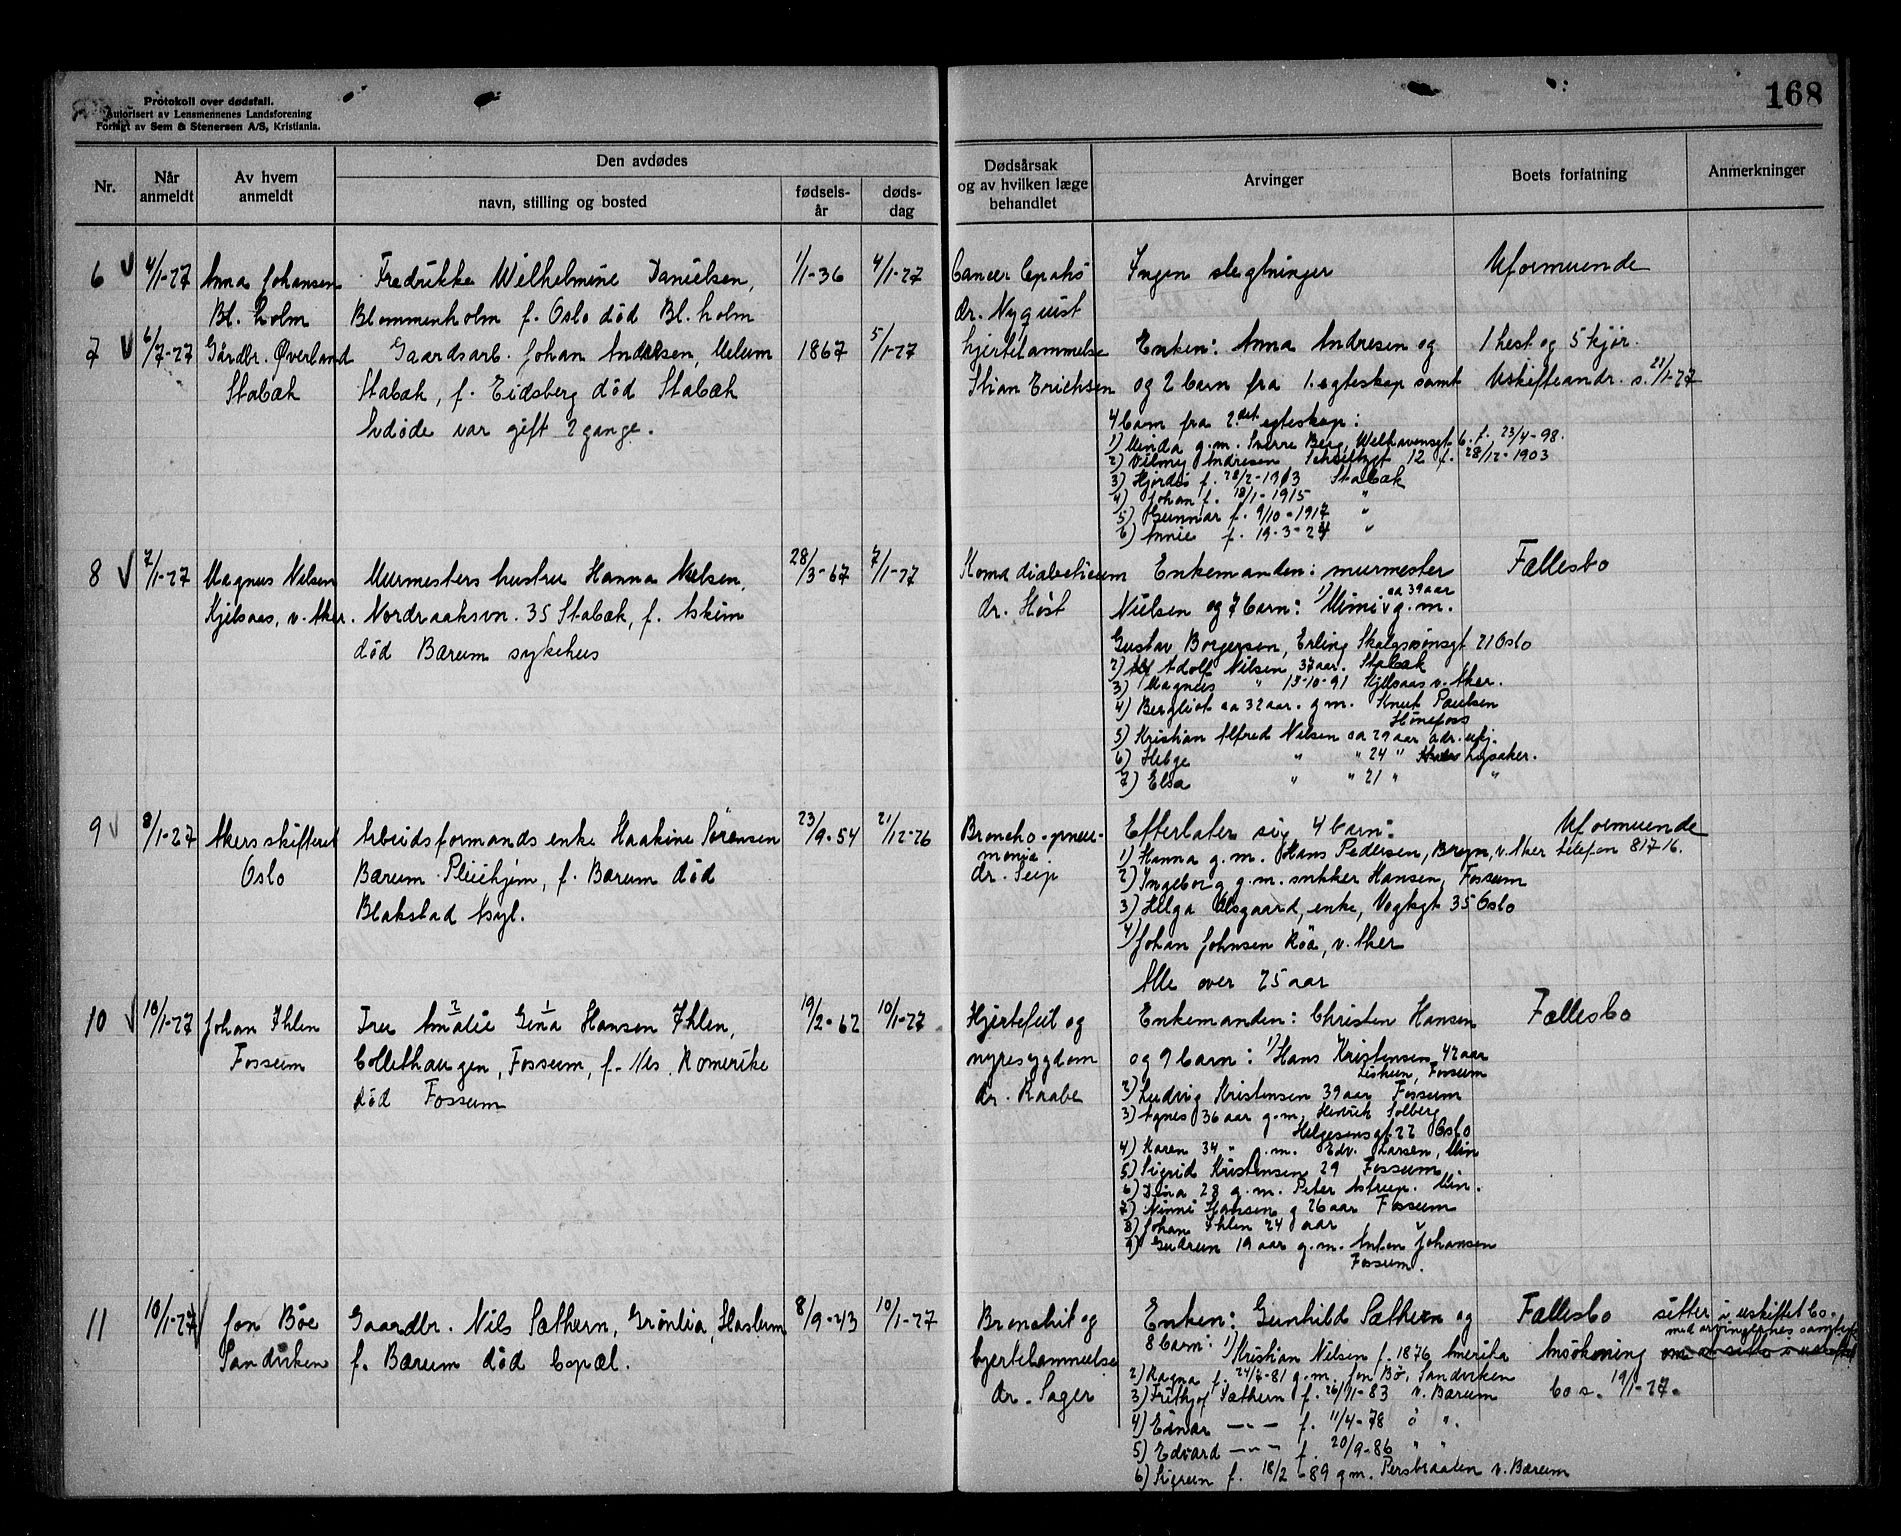 168
Protokoll over dødsfall.
Autorisert av Lensmennenes Landsforening
Forlagt av Sem & Stenersen A/S, Kristiania.
Nr.
Når anmeldt
Av hvem anmeldt
Den avdødes
navn, stilling og bosted
fødsels-år
døds-dag
Dødsårsak
og av hvilken læge
behandlet
Arvinger
Boets forfatning
Anmerkninger
6 4/1-27 Anna Johansen Fredrikke Wilhelmine Danielsen, 1/1-36 4/1-27 Cancer Ingen slegtninger Uformuende
Bl. holm Blommenholm f. Oslo død Bl. holm dr. Nyquist
7 6/7-27 Gårdbr. Øverland Gaardsarb. Johan Andersen, 1867 5/1-27 hjertelammelse Enken: Anna Andresen og 1 hest og 5 kjør.
Stabæk Stabæk, f. Eidsberg død Stabæk Stian Erichsen og 2 barn fra 1. egteskap samt Uskifteandr. s. 21/1-27
Avdøde var gift 2 gange.
4 barn fra 2.det egteskap:
1) Minda g.m. Sverre Berg, Welhavensgt 6. f. 23/4-98.
2) Vilmy Andresen 12 f. 28/12-1903
3) Hjørdis f. 28/2-1913 Stabæk
4) Johan f. 18/1-1915 "
5) Gunnar f. 9/10-1917 "
6) Annie f. 19-3-24 "
8 7/1-27 Magnus Nilsen Murmesters hustru Hanna Nilsen, 28/3-67 7/1-27 Koma diabeticum Enkemanden: murmester Fællesbo
Kjelsaas, v. Aker. Nordraaksvn. 35 Stabæk, f. Askim dr. Høst Nielsen og 7 barn: 1) Mimi ca 39 aar g.m.
død Bærum sykehus
Gustav Borgersen, Erling Skalgsønsgt 21 Oslo
2) Adolf Nilsen 37 aar. Stabæk
3) Magnus " 15-10-91 Kjelsaas v. Aker.
4) Bergliot ca 32 aar. g.m. Knut Paulsen
Hønefoss
5) Kristian Alfred Nilsen ca 29 aar adr. ukj.
6) Helge " " 24 " Lysaker.
7) Elsa " " 21 " "
9 8/1-27 Akersskifteret Arbeidsformands enke Haakine Sørensen 23/9-54 21/12-26 Broncho-pneu- Efterlater sig 4 barn: Uformuende
Oslo Bærum Pleiehjem, f. Bærum død monia
Blakstad Asyl. dr. Seip
1) Hanna g.m. Hans Pedersen, Bregn, v. Aker telefon 81716.
2) Ingeborg g.m. snikker Hansen, Fossum
3) Helga Ulsgaard, enke, Vogtsgt 35 Oslo
4) Johan Johnsen Røa, v. Aker
Alle over 25 aar
10 10/1-27 Johan Ihlen Fru 2 Amalie 1 Gina Hansen Ihlen, 19/2-62 10/1-27 Hjertefeil og Enkemanden: Christen Hansen Fællesbo
Fossum Colletthaugen, Fossum, f. Nes, Romerike nyresygdom og 9 barn: 1) Hans Kristensen 42 aar
død Fossum dr. Raabe Fossum
2) Ludvig Kristensen 39 aar Fossum
3) Agnes 36 aar g.m. Henrik Solberg
Helgesensgt. 22 Oslo
4) Karen 34 " g.m. Edv. Larsen,
5) Sigrid Kristensen 29 Fossum.
6) Dina 28 g.m. Peter Astrup.
7) Ninni Hansen g 26 aar Fossum
8) Johan Ihlen 24 aar
9) Gudrun 19 aar g.m. Anton Johansen
Fossum.
11 10/1-27 Jon Bøe Gaardbr. Nils Sæthern, Grønlia, Haslum 8/9-43 10/1-27 Bronchit og Enken: Gunhild Sæthern og Fællesbo sitter i uskiftet bo.
med arvingernes samtykke
Sandviken f. Bærum død hjertelammelse 8 barn: 1) Kristian Nilsen f. 1876 Amerika Ansøkning
dr. Sager
2) Ragna f. 24/4-81 g.m. Jon Bø, Sandviken
3) Frithjof Sæthern f. 26/11-83 v. Bærum bo s. 19/1-27.
4) Einar -"- f. 11/4-78 "
5) Edvard -"- f. 20/9-86 " "
6) Sigrun f. 18/2-89 g.m. Persbraaten v. Bærum